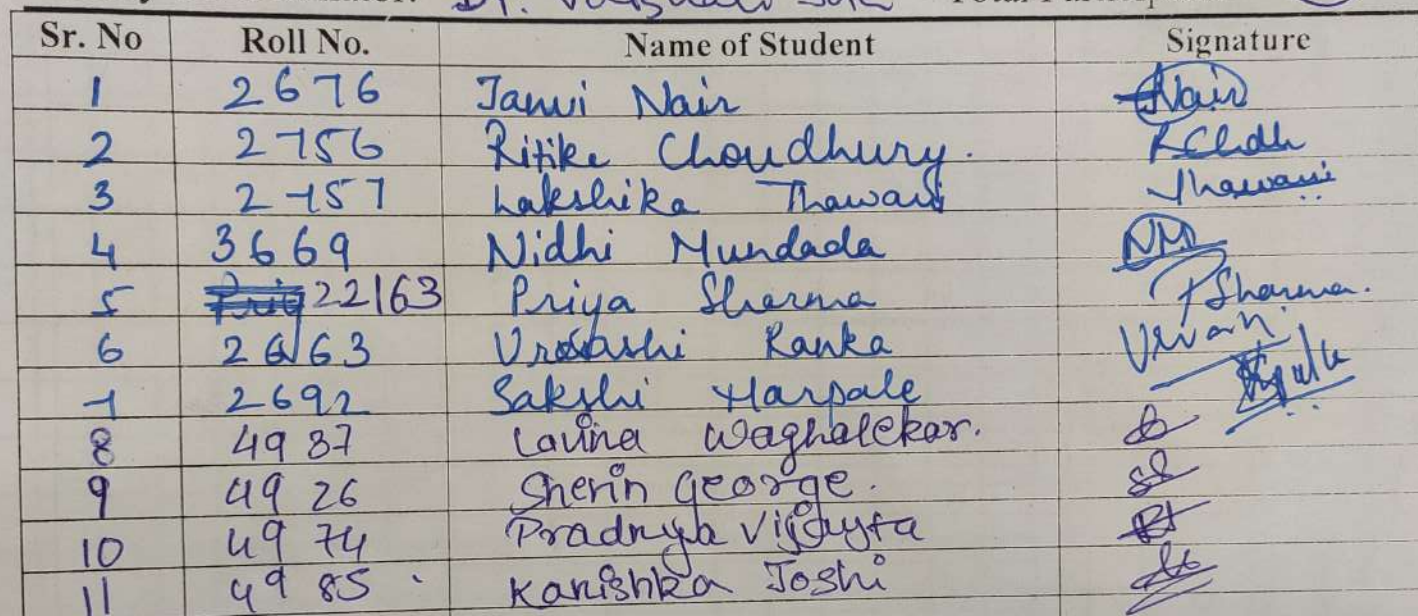 Dr. Vaishali
Sr. No Roll No. Name of Student Signature
1 2676 Janvi Nair Nair
2 2756 Ritika Choudhury. RChdh
3 2757 Lakshika Thawani Thawani
4 3669 Nidhi Mundada NM
5 22163 Priya Sharma PSharma.
6 26163 Urvashi Ranka
7 2692 Sakshi Harpale
8 4937 Lavina Waghalekar.
9 4926 Sherin George.
10 4974 Pradnya
11 4985 Kanishka Joshi